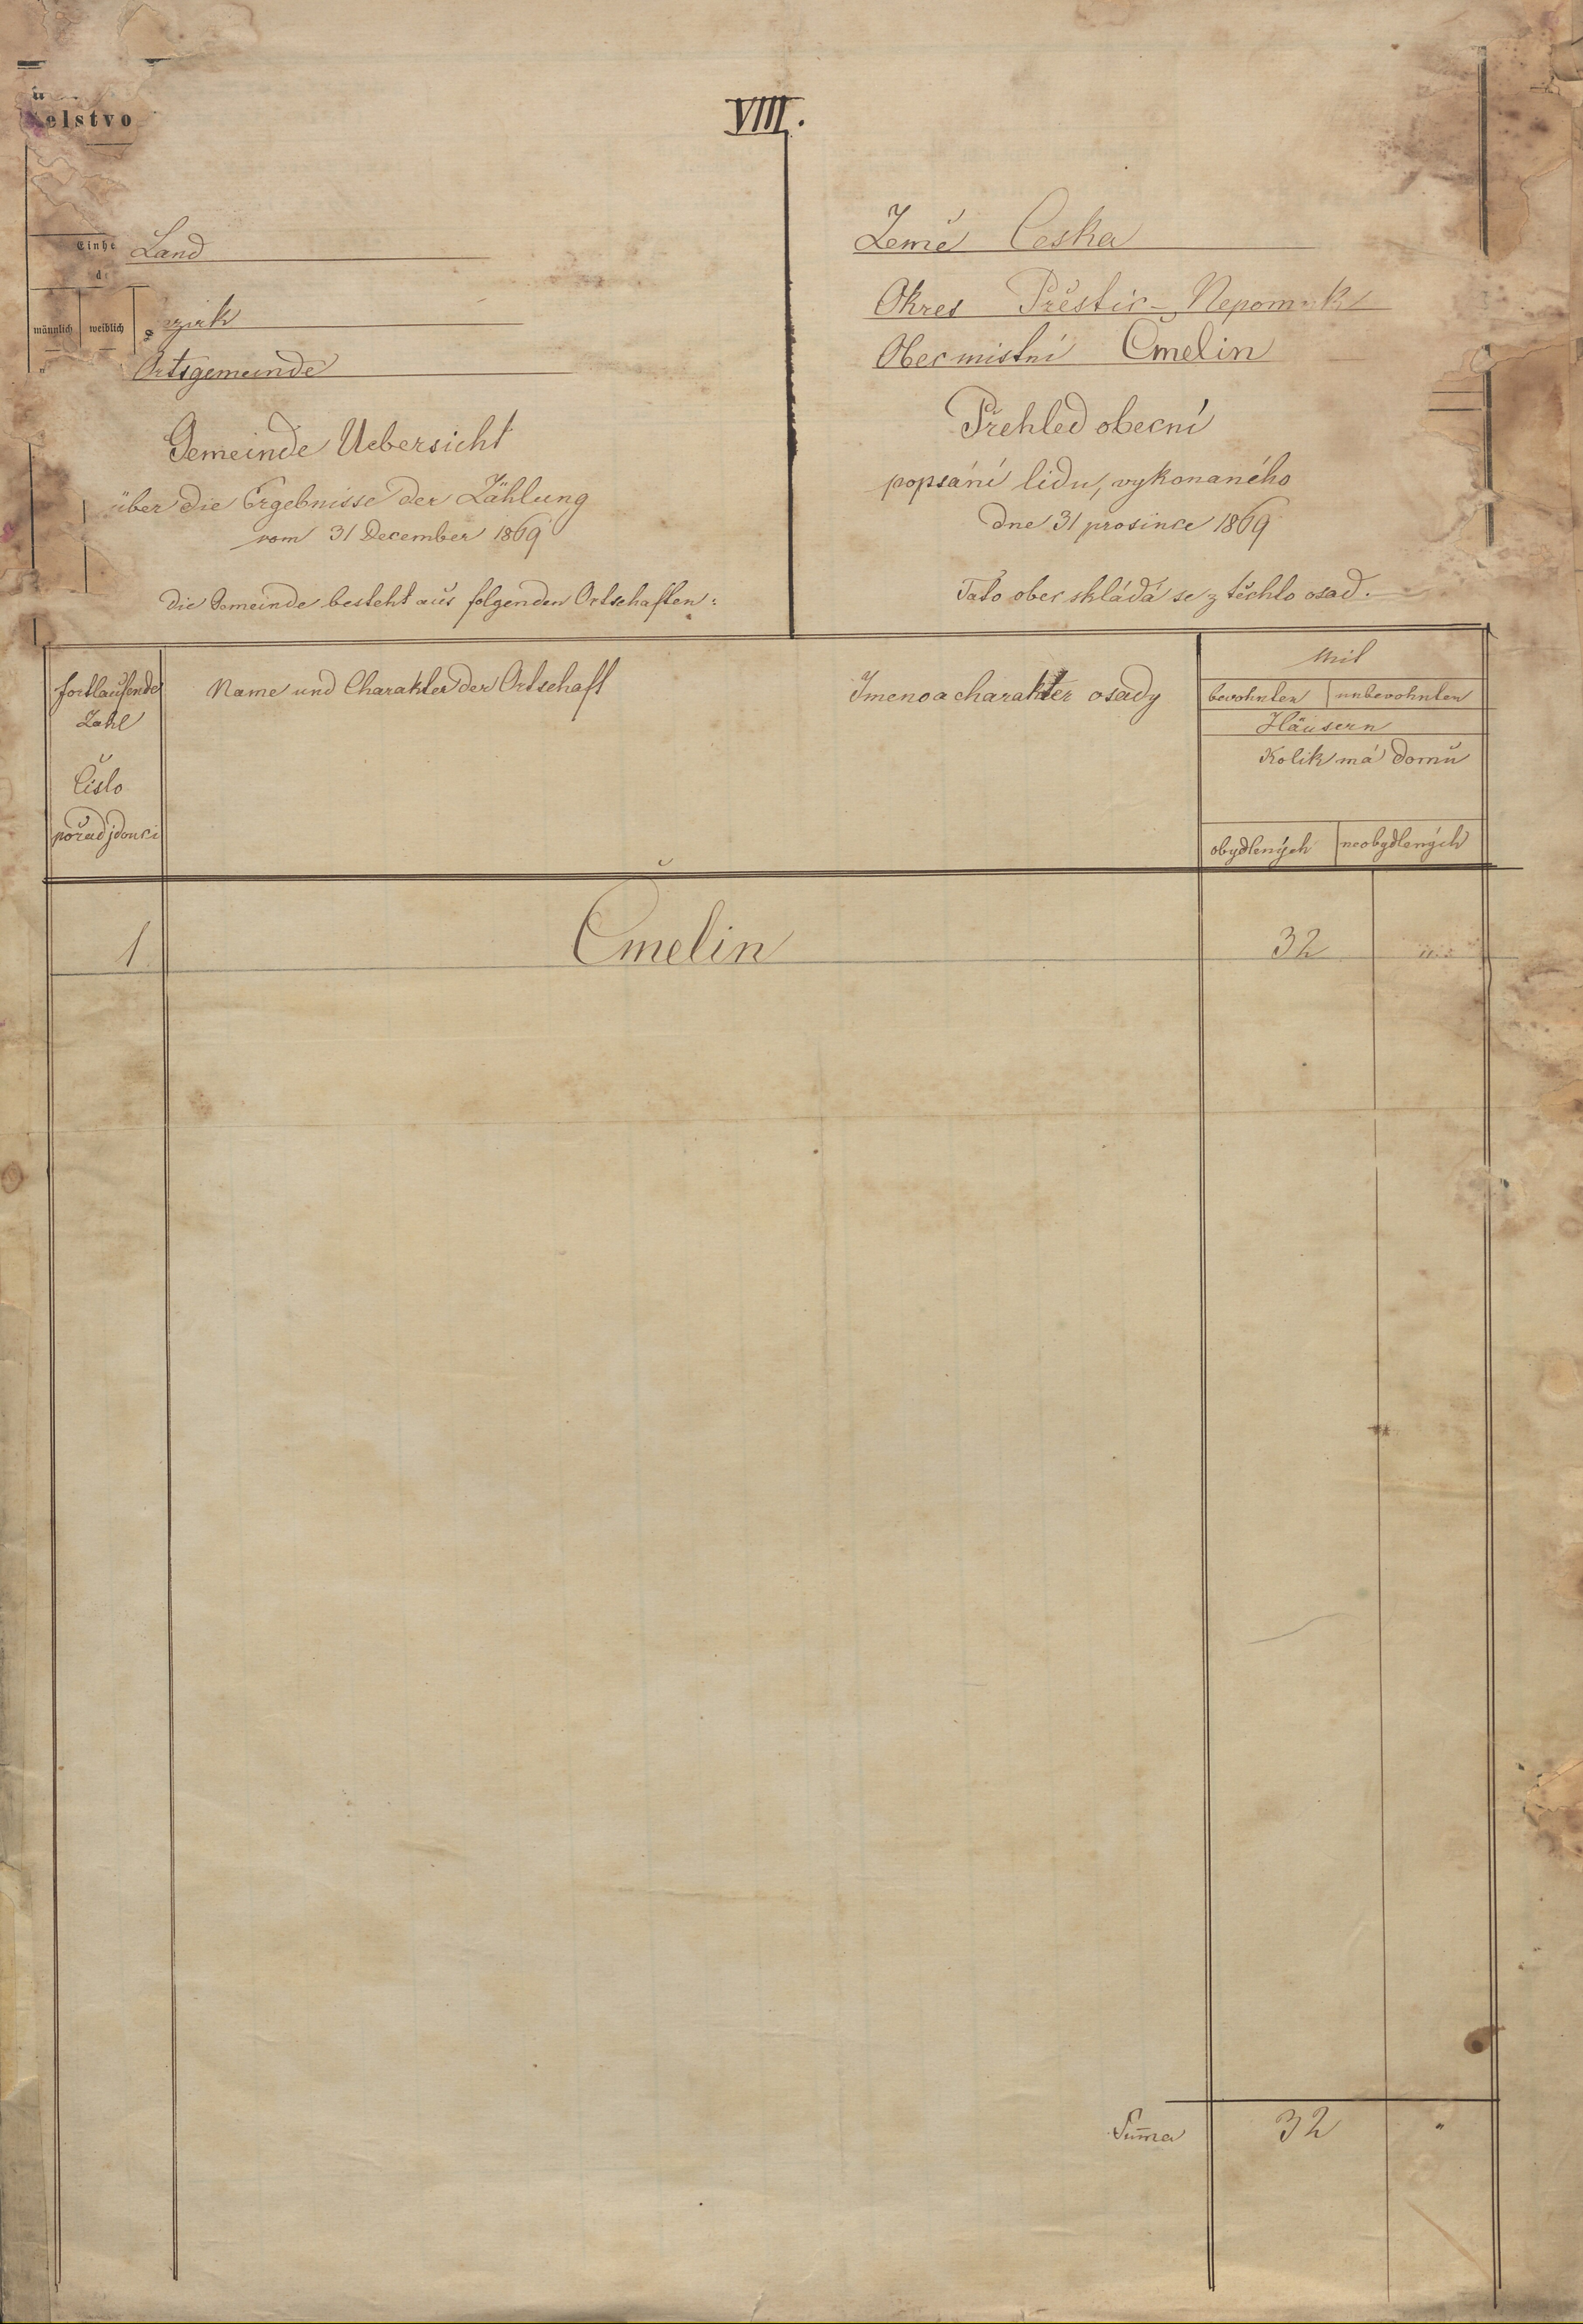 VIII.
elstvo
Einhe
de
männlich weiblich
Land
ezirk
Ortsgemeinde
Gemeinde Uebersicht
über die Ergebnisse der Zählung
vom 31 December 1869
Die Gemeinde besteht aus folgenden Ortschaften:
Země Česka
Okres Přestic-Nepomuk
Obec mistní Čmelin
Přehled obecní
popsání lidu, vykonaného
dne 31 prosince 1869
Tato obec skládá se z těchto osad.
fortlaufende
Zahl
Číslo
pořad jdoucí
Name und Charakter der Ortschaft
Imeno a charakter osady
Mit
bewohnten unbewohnten
Häusern
Kolik má domů
obydlených neobydlených
1 Čmelin 32
Sum̄a 32 "